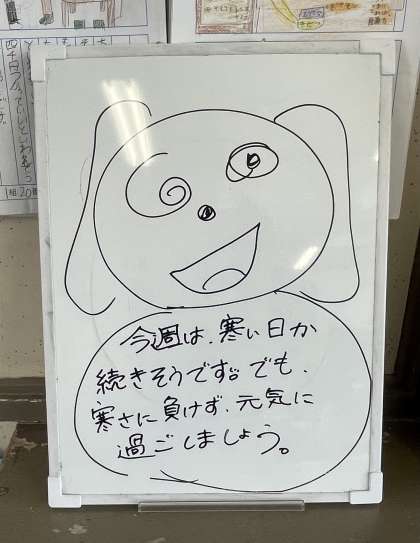 今週は、寒い日が
続きそうです。でも、
寒さに負けず、元気に
過ごしましょう。